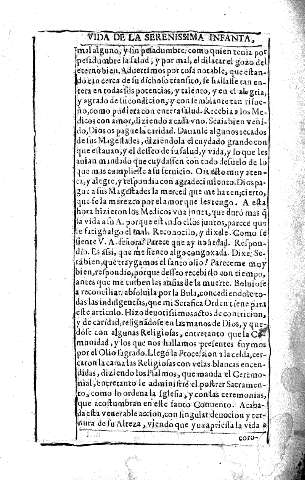 VIDA DE LA SERENISSIMA INFANTA,
mal alguno, y sin pesadumbre, como quien tenia por
pesadumbre la salud, y por mal, el dilatar el gozo del
eterno bien. Advertimos por cosa notable, que estan-
do tan cerca de su dichoso transito, se hallasse tan en-
tera en todas sus potencias, y talento, y en el alegria,
y agrado de su condicion, y con semblante tan risue-
ño, como pudiera con entera salud. Recebia a los Me-
dicos con amor, diziendo a cada vno. Seais bien veni-
do, Dios os pague la caridad. Davanle algunos recados
de sus Magestades, diziendola el cuydado grande con
que estavan, y el desseo de su salud, y vida, y lo que les
avian mandado que cuydassen con todo desvelo de lo
que mas cumpliesse a su servicio. Oia esto muy aten-
ta, y alegre, y respondia con agradecimiento. Dios pa-
gue a sus Magestades la merced que me hazen cierto,
que se la merezco por el amor que les tengo. A esta
hora hizieron los Medicos vna junta, que duró mas q̃
la vida a su A. porque el vno de ellos juntos, parece que
se fatigó algo el mal. Reconociolo, y dixole. Como se
siente V. A. señora? Parece que ay novedad. Respon-
dio. Es assi, que me siento algo congoxada. Dixe, Se-
rà bien, que traygamos el santo olio? Pareceme muy
bien, respondio, porque desseo recebirlo con tiempo,
antes que me turben las ansias de la muerte. Bolviose
a reconciliar, absolvila por la Bula, concediendole to-
das las indulgencias, que mi Serafica Orden tiene para
este articulo. Hizo devotissimos actos de contricion,
y de caridad, resignandose en las manos de Dios, y que-
dose con algunas Religiosas, entretanto que la Co-
munidad, y los que nos hallamos presentes fuymos
por el Olio sagrado. Llegò la Procession a la celda, cer-
caron la cama las Religiosas con velas blancas encen-
didas, diziendo los Psalmos, que manda el Ceremo-
nial, entretanto se administrò el postrer Sacramen-
to, como lo ordena la Iglesia, y con las ceremonias,
que acostumbran en este santo Convento. Acaba-
da esta venerable accion, con singular devocion y ter-
nura de su Alteza, viendo que ya apricia la vida a
coro-